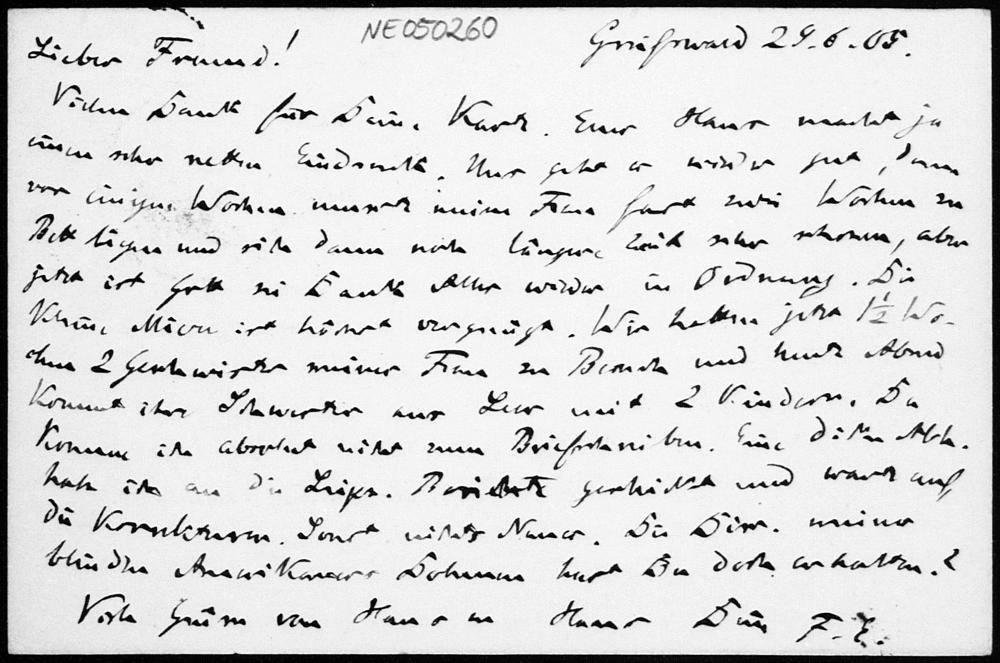 NE050260
Greifswald 29.6.05.
Lieber Freund!
Vielen Dank für Deine Karte. Euer Haus macht ja
einen sehr netten Eindruck. Uns geht es wieder gut, denn
vor einigen Wochen musste meine Frau fast zwei Wochen zu
Bett liegen und sich dann noch längere Zeit sehr schonen, aber
jetzt ist Gott sei Dank Alles wieder in Ordnung. Die
kleine ist höchst vergnügt. Wir hatten jetzt 1½ Wo-
chen 2 Geschwister meiner Frau zu Besuch und heute Abend
kommt ihre Schwester aus Leer mit 2 Kindern. Da
komme ich absolut nicht zum Briefschreiben. Eine dicke Abh.
habe ich an die Leipz. Berichte geschickt und warte auf
die Korrekturen. Sonst nichts Neues. Die Diss. meines
blinden Amerikaners hast Du doch erhalten?
Viele Grüsse von Haus zu Haus Dein F. E.